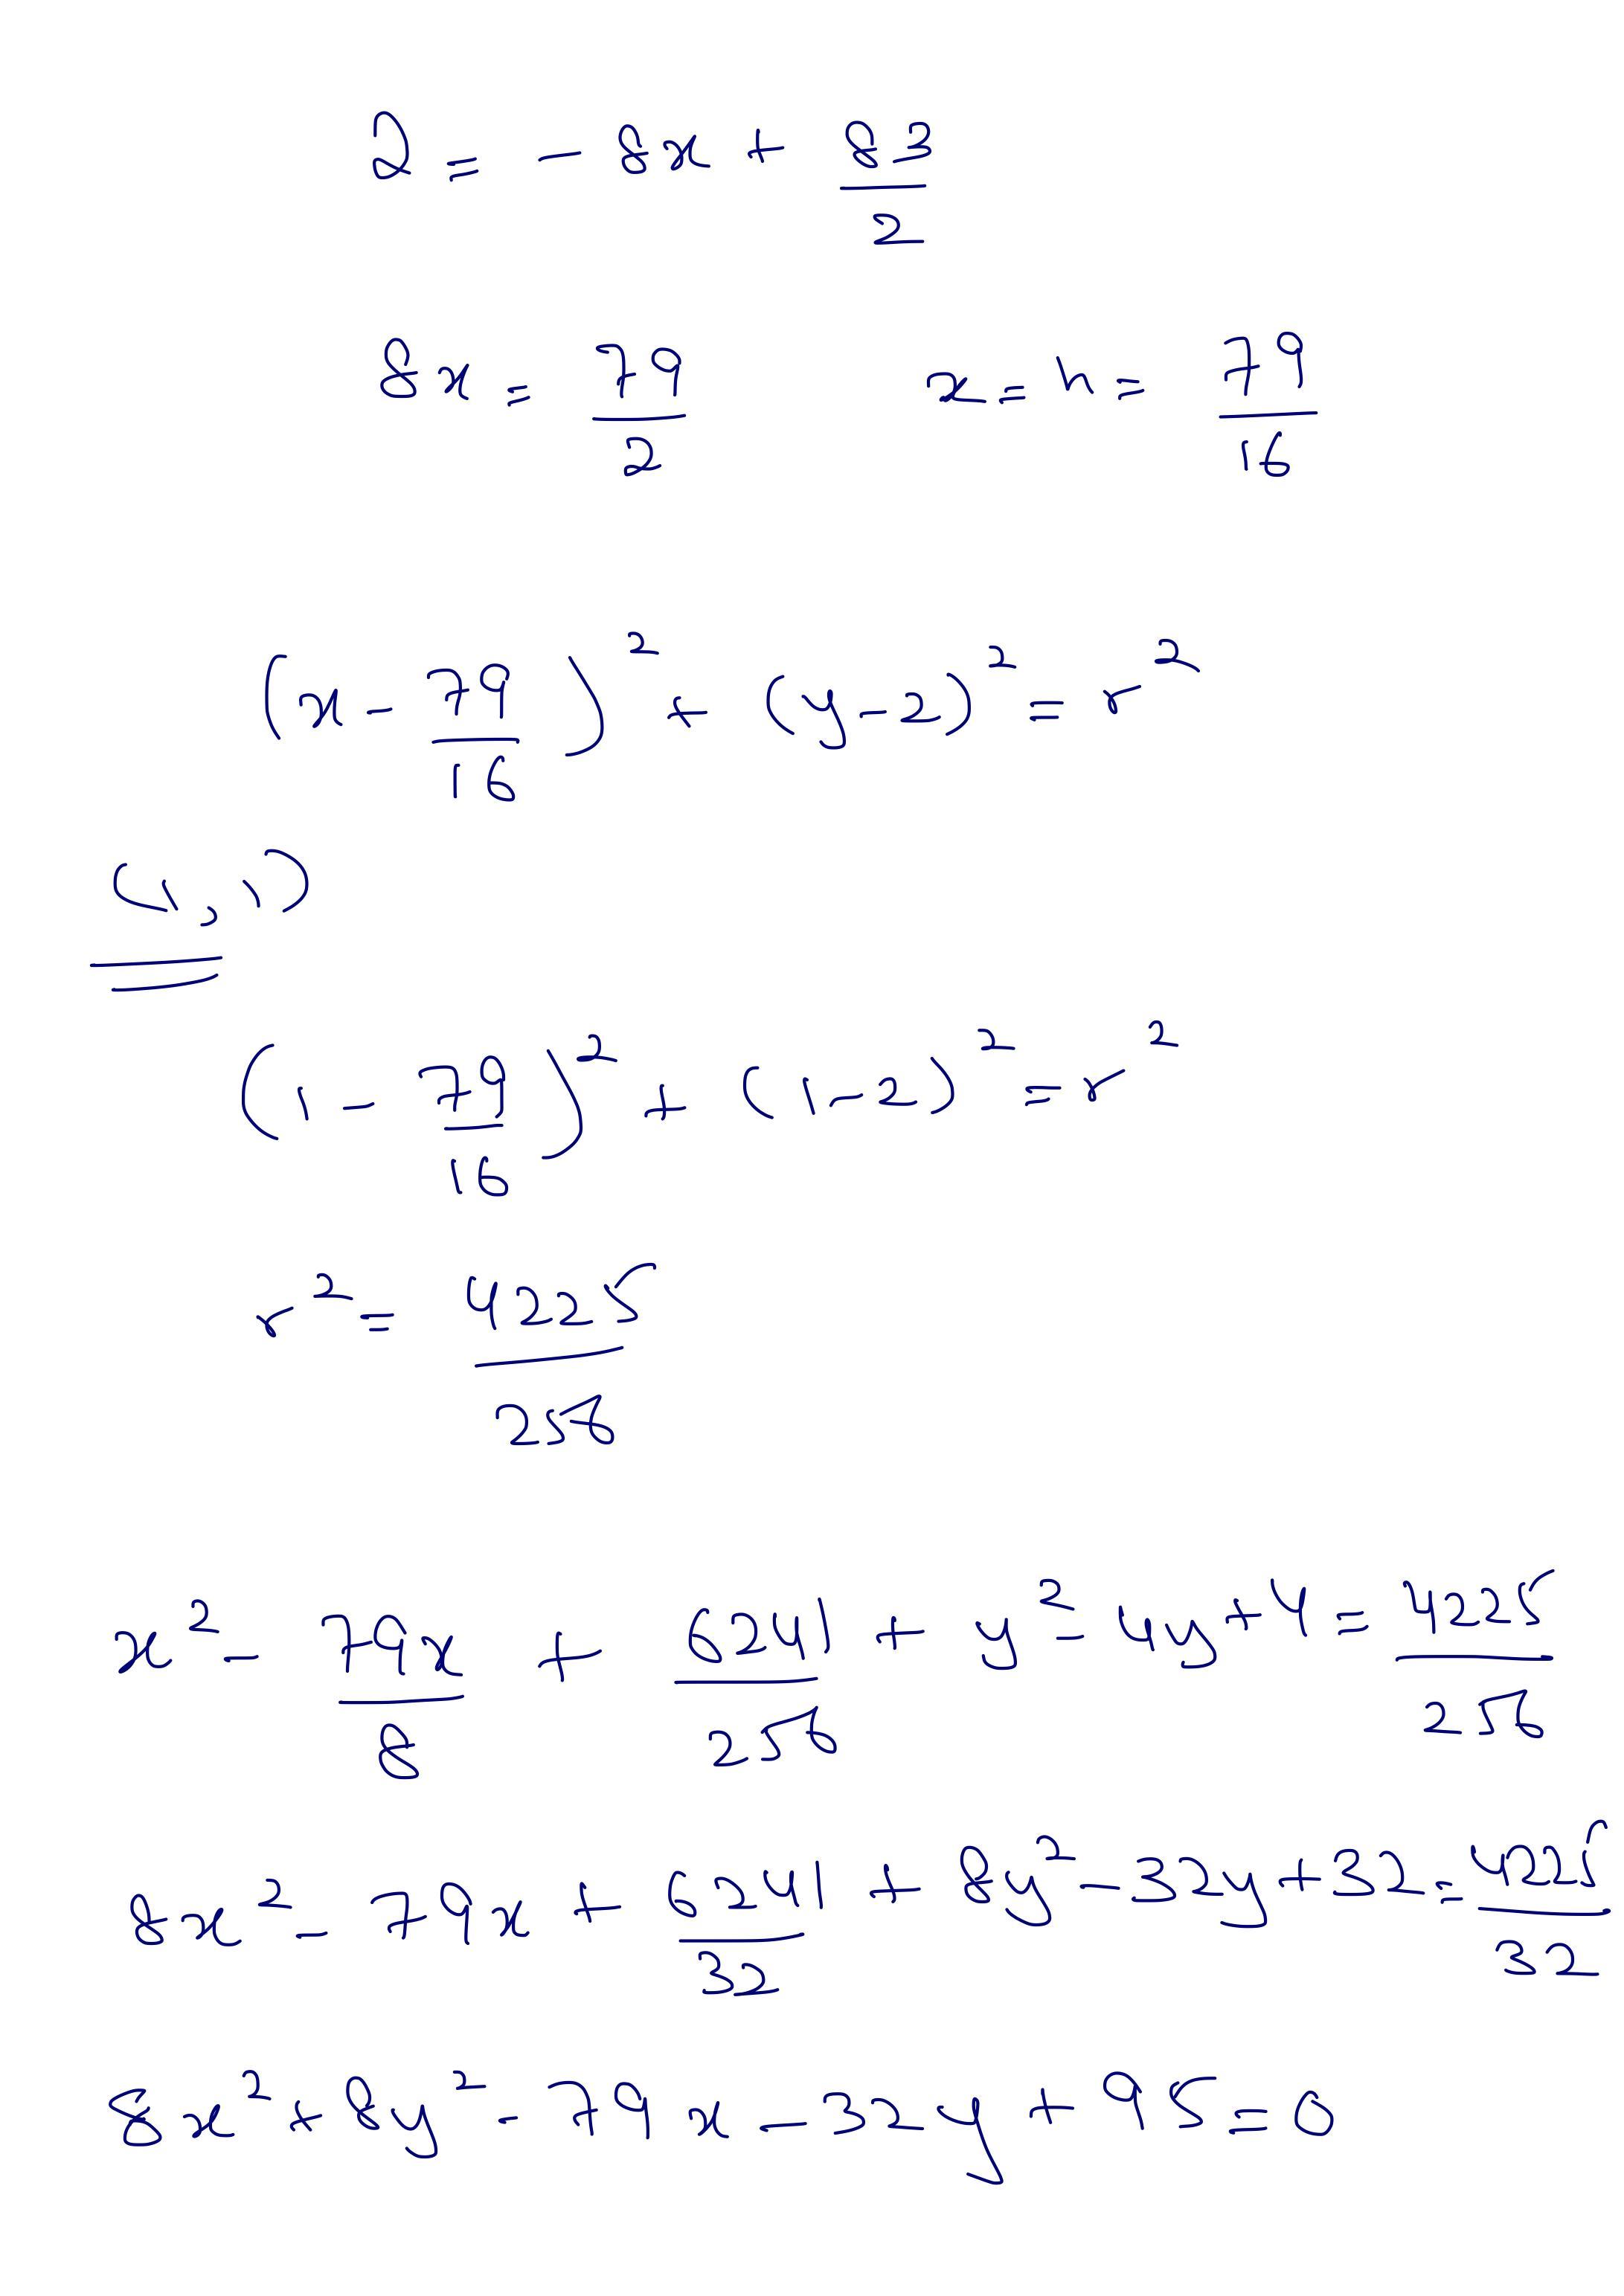 2 = - 8x + 83/2
8x = 79/2    x = h = 79/16
(x - 79/16)² + (y - 2)² = r²
(1, 1)
(1 - 79/16)² + (1 - 2)² = r²
r² = 4225/256
x² - 79x/8 + 6241/256 + y² - 4y + 4 = 4225/256
8x² - 79x + 6241/32 + 8y² - 32y + 32 = 4225/32
8x² + 8y² - 79x - 32y + 95 = 0